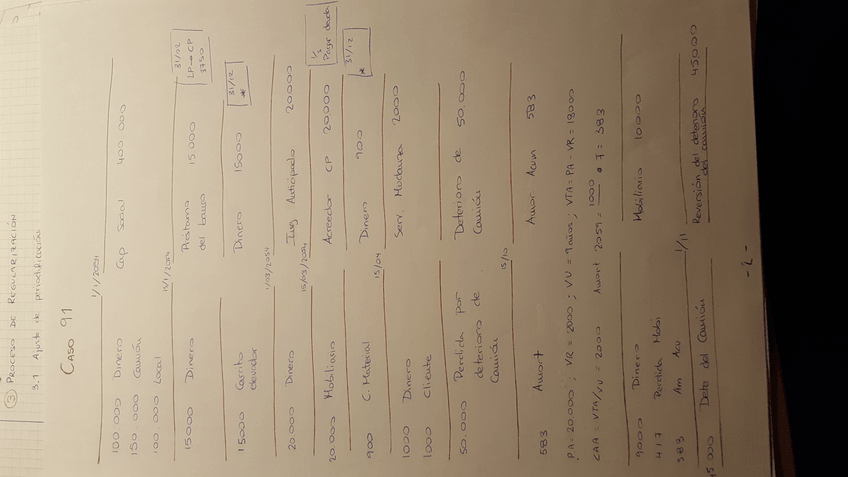 ③ PROCESO DE REGULARIZACIÓN
3.1 Ajuste de periodificación
CASO 91
1/1/2054
100.000 Dinero Cap Social 400.000
150.000 Camión
100.000 Local
15/1/2054
15000 Dinero Préstamo del banco 15000
31/02
LP → CP
3750
15000 Carrito elevador Dinero 15000
31/12
*
1/03/2054
20.000 Dinero Ing Anticipado 20000
15/03/2054
20.000 Mobiliario Acreedor CP 20000
Pagar deuda
900 C. Material Dinero 900
31/12
*
15/04
1000 Dinero Serv. Mudanza 2000
1000 Cliente
50.000 Perdida por deterioro de Camión Deterioro de Camión 50.000
15/10
583 Amort Amor Acum 583
PA = 20.000 ; VR = 2000 ; VU = 9 años ; VTA = PA - VR = 18000
CAA = VTA/VU = 2000 Amort 2054 = 1000 • 7 = 583
9000 Dinero Mobiliario 10000
417 Perdida Mobi
583 Am Acu
1/11
45000 Dete del Camión Reversión del deterioro del camión 45000
- 2 -